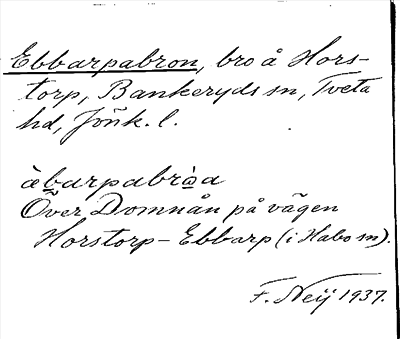 Ebbarpabron, bro å Hors-
torp, Bankeryds sn, Tveta
hd, Jönk. l.
àbarpabròa
Över Domnån på vägen
Horstorp – Ebbarp (i Habo sn).
F. Neij 1937.